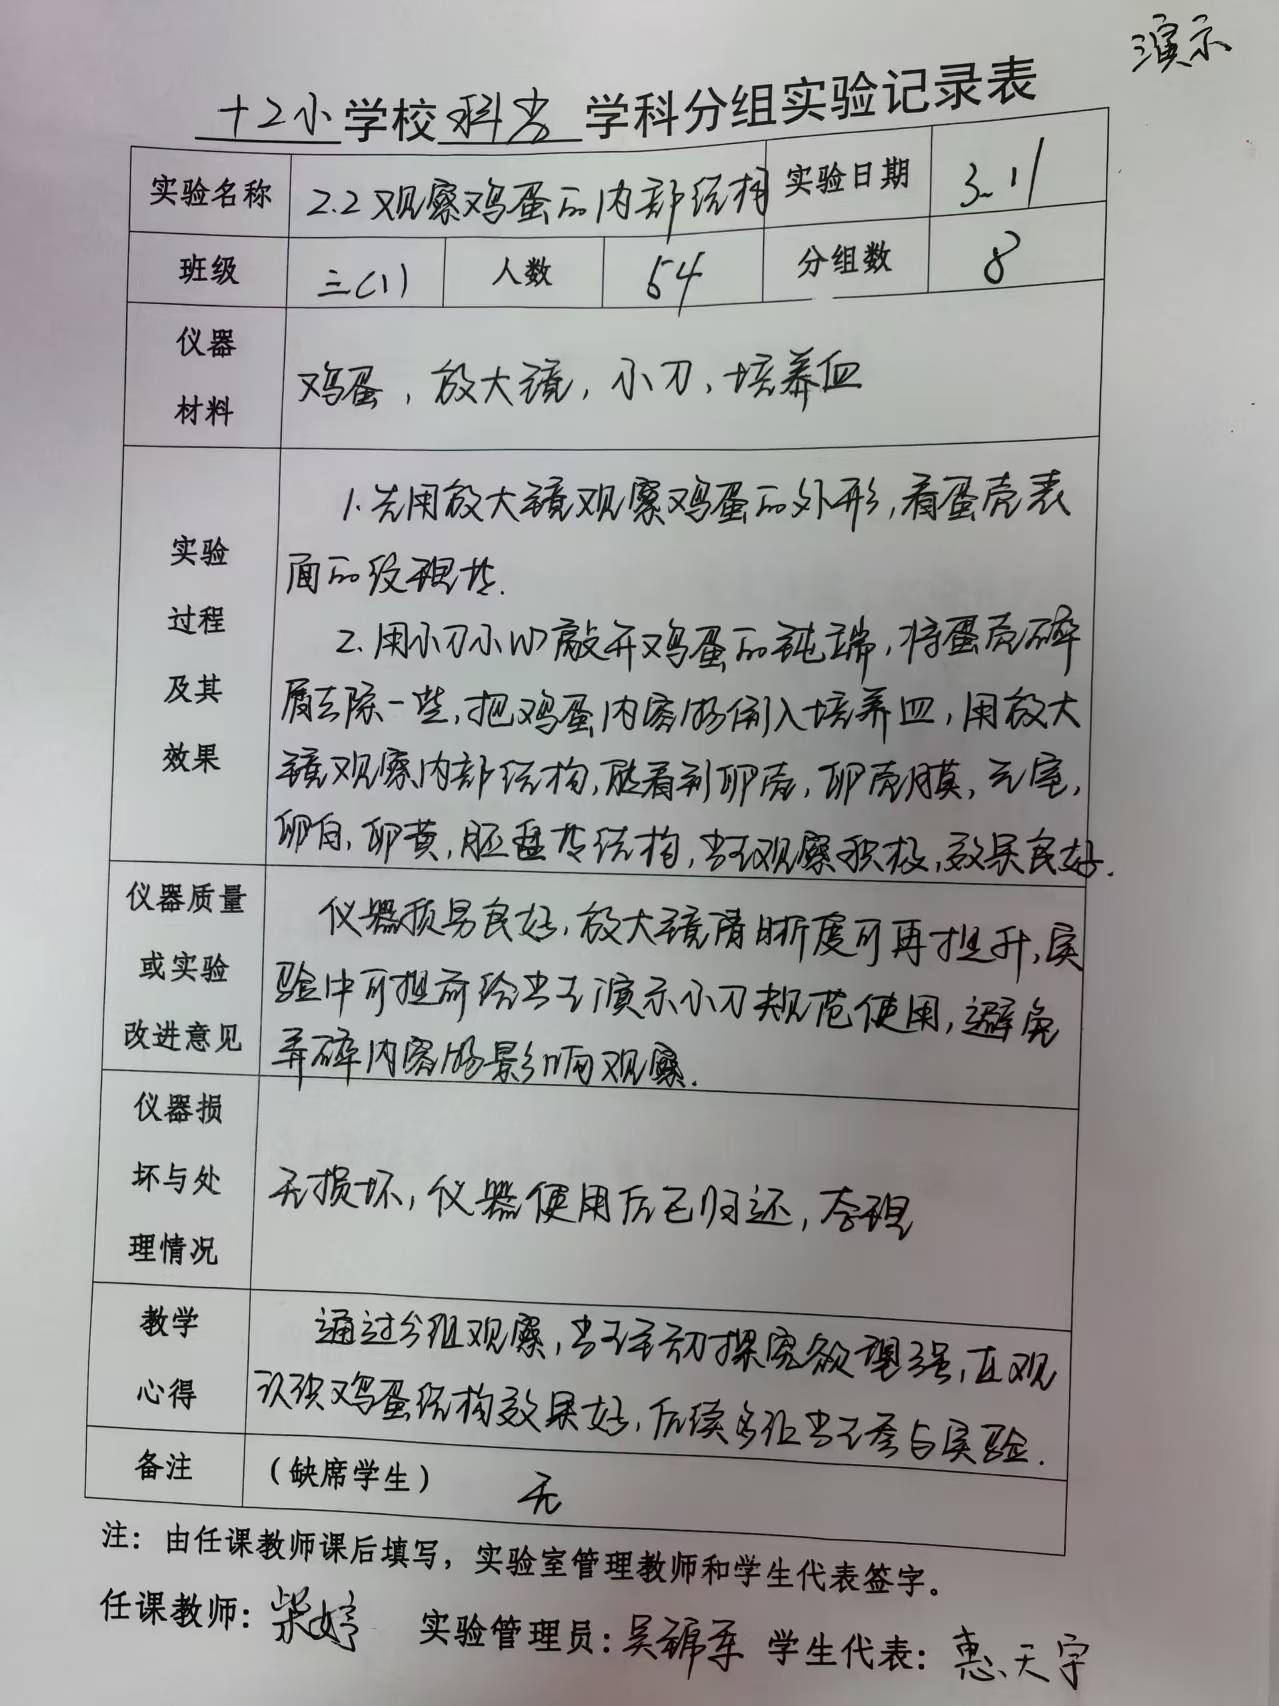 演示
十2小学校科学学科分组实验记录表
实验名称 2.2观察鸡蛋的内部结构 实验日期 3.11
班级 三(1) 人数 54 分组数 8
仪器
材料
鸡蛋，放大镜，小刀，培养皿
实验
过程
及其
效果
1.先用放大镜观察鸡蛋的外形，看蛋壳表
面的纹理等.
2.用小刀小心敲开鸡蛋的钝端，将蛋壳碎
屑去除一些，把鸡蛋内容物倒入培养皿，用放大
镜观察内部结构，能看到卵壳，卵壳膜，气室，
卵白，卵黄，胚盘等结构，学生观察积极，效果良好.
仪器质量
或实验
改进意见
仪器质量良好，放大镜清晰度可再提升，实
验中可提前给学生演示小刀规范使用，避免
弄碎内容物影响观察.
仪器损
坏与处
理情况
无损坏，仪器使用后已归还，整理
教学
心得
通过分组观察，学生主动探究欲望强，直观
认识鸡蛋结构效果好，后续多让学生参与实验.
备注 （缺席学生） 无
注：由任课教师课后填写，实验室管理教师和学生代表签字。
任课教师：柴婷 实验管理员：吴锦 学生代表：惠天宇